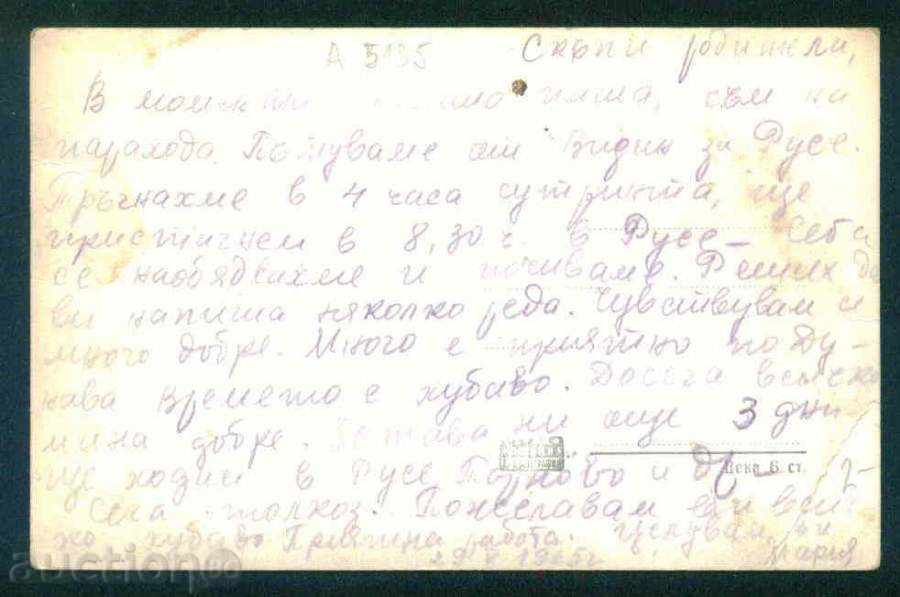 А 5135 Скъпи родители,
В момента пиша, съм на
парахода. Пътуваме от Видин за Русе.
Тръгнахме в 4 часа сутринта, ще
пристигнем в 8,30 ч. в Русе.
се наобядвахме и почиваме. Реших да
ви напиша няколко реда. Чувствувам се
много добре. Много е приятно по Ду-
нава времето е хубаво. Досега всичко
мина добре. Остава ни още 3 дни
ще ходим в Русе, Търново и др.
Цена 6 ст.
Сега толкоз. Пожелавам ви вси-
ко хубаво Приятна работа. Целувам ви
Мария
аукцион